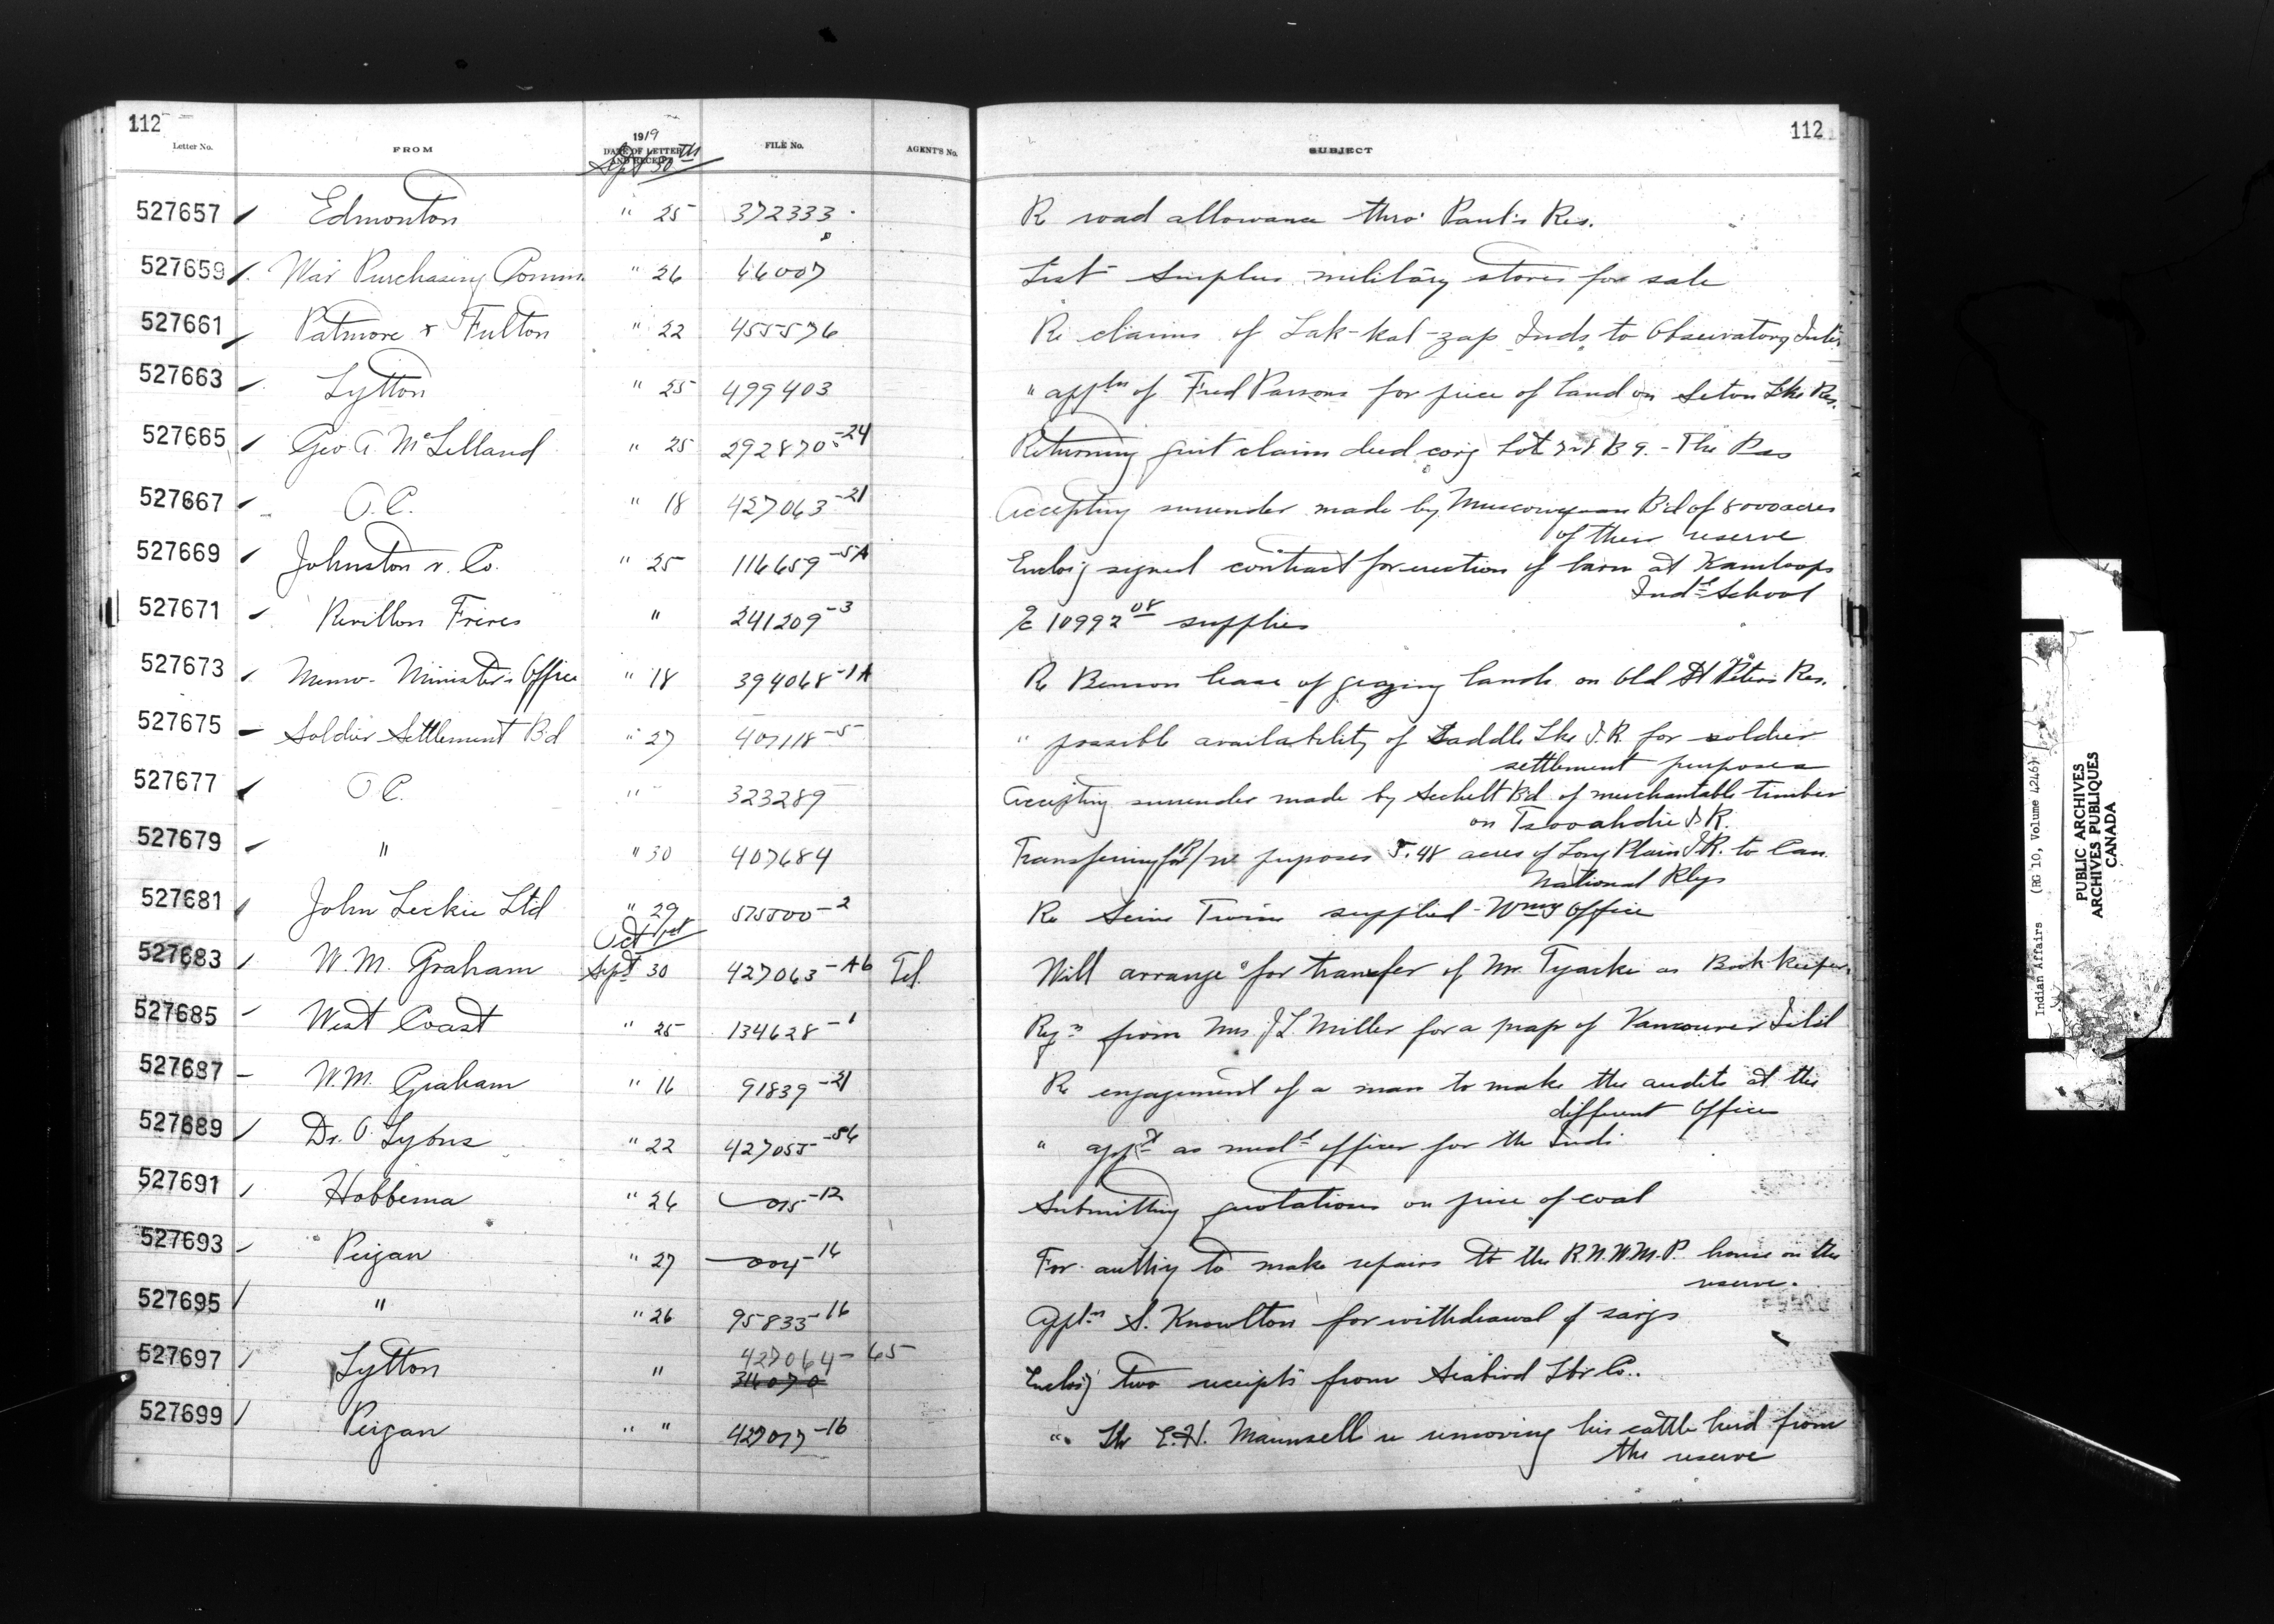 112
112
Letter No.
FROM
1919
DATE OF LETTER AND RECEIPT
FILE No.
AGENT'S No.
SUBJECT
Sept 30th
527657 Edmonton " 25 372333 Re road allowance thro' Paul's Res.
527659 War Purchasing Comm. " 26 46007 List Surplus military stores for sale
527661 Patmore & Fulton " 22 455576 Re claims of Lak-kal-zap Inds. to Observatory Inlet
527663 Lytton " 25 499403 " appln of Fred Parsons for piece of land on Seton Lke Res.
527665 Geo A McLelland " 25 292870-24 Returning quit claim deed covg Lot B 9. - The Pas
527667 O.C. " 18 427063-21 Accepting surrender made by Muscowequan Bd of 8000 acres
of their reserve
527669 Johnston & Co. " 25 116659-5A Enclosg signed contract for erection of barn at Kamloops
Indl School
527671 Revillon Freres " 241209-3 a/c 10992 08 supplies
527673 Memo- Minister's Office " 18 394068-1A Re Benson lease of grazing lands on Old St Peter's Res.
527675 Soldier Settlement Bd " 27 407118-5 " possible availability of Saddle Lke I.R. for soldier
settlement purposes
527677 O C. " 323289 Accepting surrender made by Sechelt Bd of merchantable timber
on Tsooahdie I.R.
527679 " " 30 407684 Transferring for R/W purposes 5.48 acres of Long Plain I.R. to Can.
National Rlys
527681 John Leckie Ltd " 29 575500-2 Re Seine Twine supplied - Wmny Office
Oct 1st
527683 W.M. Graham Sept 30 427063-A6 Tel. Will arrange for transfer of Mr. Tyacke as Book keeper
527685 West Coast " 25 134628-1 Reqn from Mrs J L Miller for a map of Vancouver Isld
527687 W.M. Graham " 16 91839-21 Re engagement of a man to make the audits at the
different offices
527689 Dr. O. Lyons " 22 427055-56 " appt as medl officer for the Inds
527691 Hobbema " 26 015-12 Submitting quotations on price of coal
527693 Peigan " 27 004-16 For authy to make repairs to the R.N.W.M.P. house on the
reserve.
527695 " " 26 95833-16 Appln S. Knowlton for withdrawal of savgs
527697 Lytton " 427064-65 Enclosg two receipts from Seabird Lbr Co..
314070
527699 Peigan " " 427017-16 " ltr E.H. Maunsell re removing his cattle herd from
the reserve
Indian Affairs (RG 10, Volume 4246)
PUBLIC ARCHIVES
ARCHIVES PUBLIQUES
CANADA